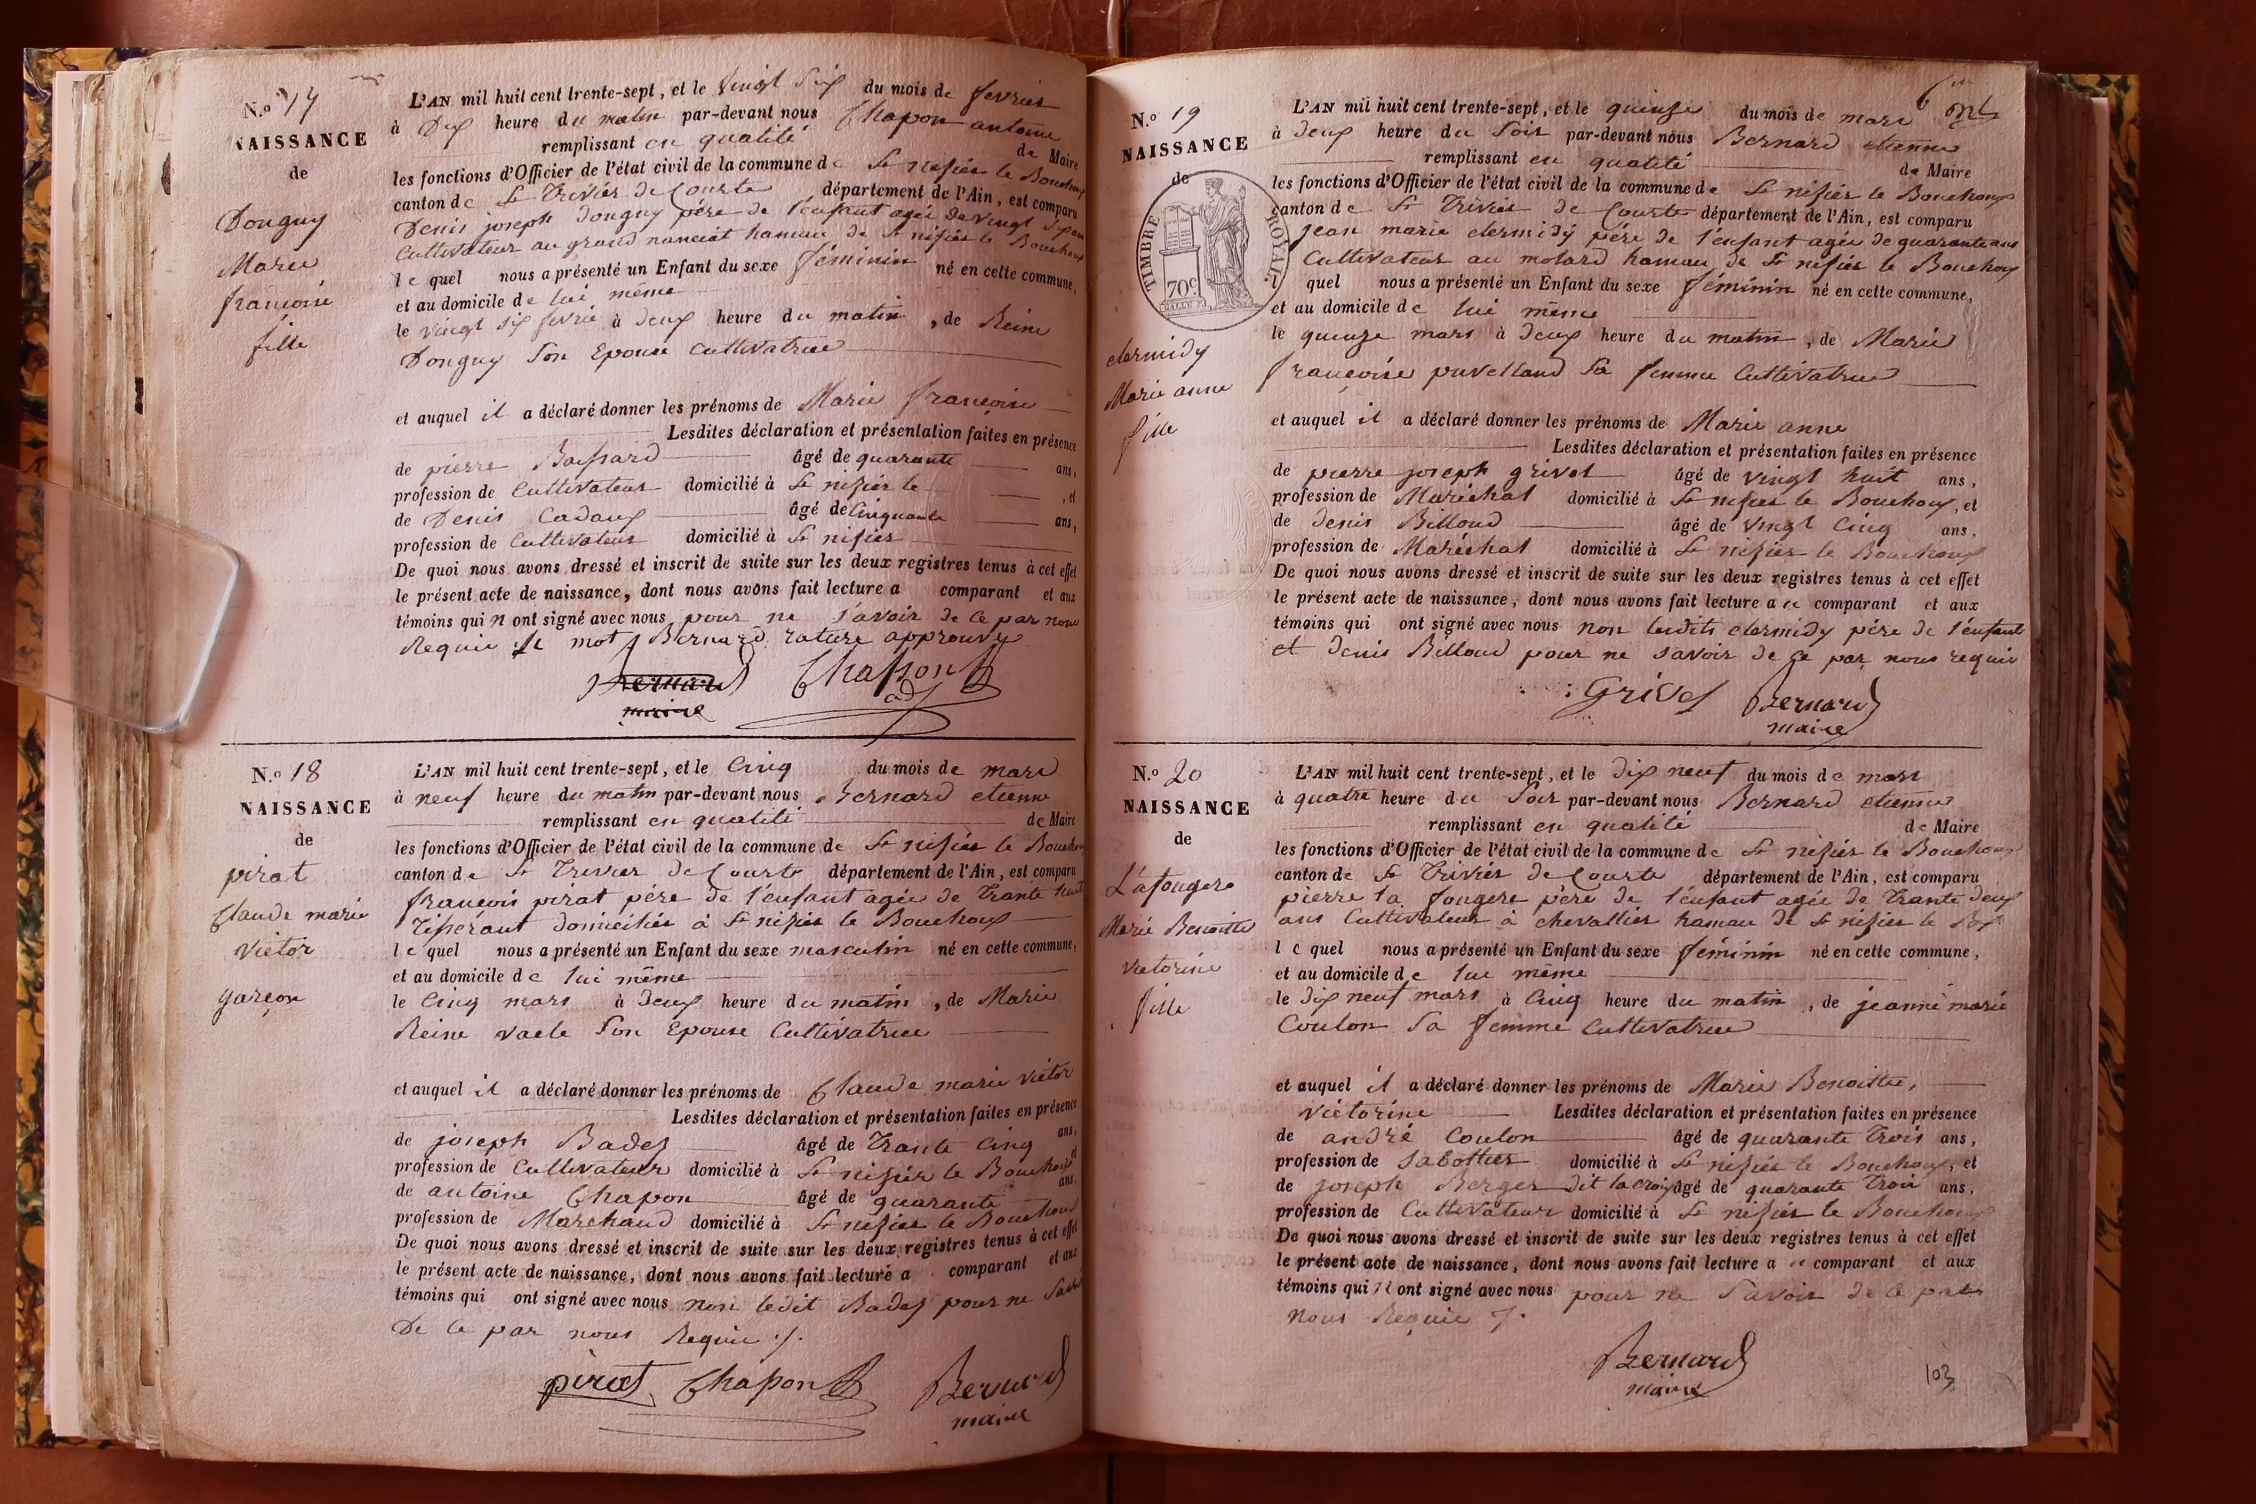 N.o 17
NAISSANCE
de
Donguy
Marie
françoise
fille
L'AN mil huit cent trente-sept, et le vingt six du mois de fevrier
à Dix heure du matin par-devant nous Chapon antoine
remplissant en qualité de Maire
les fonctions d'Officier de l'état civil de la commune de St nisier le Bouchoux
canton de St Trivier de Courte département de l'Ain, est comparu
Denis joseph donguy pére de l'enfant agée de vingt six ans
Cultivateur au grand nanciat hameau de St nisier le Bouchoux
le quel nous a présenté un Enfant du sexe féminin né en cette commune,
et au domicile de lui même
le vingt six fevrie à deux heure du matin, de Reine
Donguy son Epouse Cultivatrice
et auquel il a déclaré donner les prénoms de Marie françoise
Lesdites déclaration et présentation faites en présence
de pierre Bassard âgé de quarante ans,
profession de Cultivateur domicilié à St nisier le , et
de Denis Cadoux âgé de Cinquante ans,
profession de Cultivateur domicilié à St nisier
De quoi nous avons dressé et inscrit de suite sur les deux registres tenus à cet effet
le présent acte de naissance, dont nous avons fait lecture a comparant et aux
témoins qui n ont signé avec nous pour ne savoir de ce par nous
Requis le mot Bernard rature approuvé
Bernard Chapon
maire
N.o 18
NAISSANCE
de
pirat
Claude marie
victor
garçon
L'AN mil huit cent trente-sept, et le Cinq du mois de mars
à neuf heure du matin par-devant nous Bernard etienne
remplissant en qualité de Maire
les fonctions d'Officier de l'état civil de la commune de St nisier le Bouchoux
canton de St Trivier de Courte département de l'Ain, est comparu
françois pirat pére de l'enfant agée de Trante huit
Tisserant domiciliés à St nisier le Bouchoux
le quel nous a présenté un Enfant du sexe masculin né en cette commune,
et au domicile de lui même
le Cinq mars à deux heure du matin, de Marie
Reine vacle son Epouse Cultivatrice
et auquel il a déclaré donner les prénoms de Claude marie victor
Lesdites déclaration et présentation faites en présence
de joseph Badez âgé de Trante Cinq ans,
profession de Cultivateur domicilié à St nisier le Bouchoux et
de antoine Chapon âgé de quarante ans,
profession de Marchand domicilié à St nisier le Bouchoux
De quoi nous avons dressé et inscrit de suite sur les deux registres tenus à cet effet
le présent acte de naissance, dont nous avons fait lecture a comparant et aux
témoins qui ont signé avec nous non ledit Badez pour ne savoir
De ce par nous Requis ./.
pirat Chapon Bernard
maire
N.o 19
NAISSANCE
de
TIMBRE ROYAL
70c
clermidy
Marie anne
fille
L'AN mil huit cent trente-sept, et le quinze du mois de mars
à deux heure du soir par-devant nous Bernard etienne
remplissant en qualité de Maire
les fonctions d'Officier de l'état civil de la commune de St nisier le Bouchoux
canton de St Trivier de Courte département de l'Ain, est comparu
jean marie clermidy pére de l'enfant agée de quarante ans
Cultivateur au molard hameau de St nisier le Bouchoux
quel nous a présenté un Enfant du sexe féminin né en cette commune,
et au domicile de lui même
le quinze mars à deux heure du matin, de Marie
françoise puvelland sa femme Cultivatrice
et auquel il a déclaré donner les prénoms de Marie anne
Lesdites déclaration et présentation faites en présence
de pierre joseph grivel âgé de vingt huit ans,
profession de Maréchal domicilié à St nisier le Bouchoux, et
de denis Billoud âgé de vingt Cinq ans,
profession de Maréchal domicilié à St nisier le Bouchoux
De quoi nous avons dressé et inscrit de suite sur les deux registres tenus à cet effet
le présent acte de naissance, dont nous avons fait lecture a ce comparant et aux
témoins qui ont signé avec nous non lesdits clermidy pére de l'enfant
et denis Billoud pour ne savoir de ce par nous requis
Grivel Bernard
maire
N.o 20
NAISSANCE
de
Lafougere
Marie Benoitte
victorine
fille
L'AN mil huit cent trente-sept, et le dix neuf du mois de mars
à quatre heure du soir par-devant nous Bernard etienne
remplissant en qualité de Maire
les fonctions d'Officier de l'état civil de la commune de St nisier le Bouchoux
canton de St Trivier de Courte département de l'Ain, est comparu
pierre la fougere pére de l'enfant agée de Trante deux
ans Cultivateur à chevallier hameau de St nisier le Bx
le quel nous a présenté un Enfant du sexe féminin né en cette commune,
et au domicile de lui même
le dix neuf mars à Cinq heure du matin, de jeanne marie
Coulon sa femme Cultivatrice
et auquel il a déclaré donner les prénoms de Marie Benoitte,
victorine Lesdites déclaration et présentation faites en présence
de andré Coulon âgé de quarante trois ans,
profession de Sabottier domicilié à St nisier le Bouchoux, et
de joseph Berger dit lacroix âgé de quarante trois ans,
profession de Cultivateur domicilié à St nisier le Bouchoux
De quoi nous avons dressé et inscrit de suite sur les deux registres tenus à cet effet
le présent acte de naissance, dont nous avons fait lecture a ce comparant et aux
témoins qui n ont signé avec nous pour ne savoir de ce par
nous Requis ./.
Bernard
maire
103